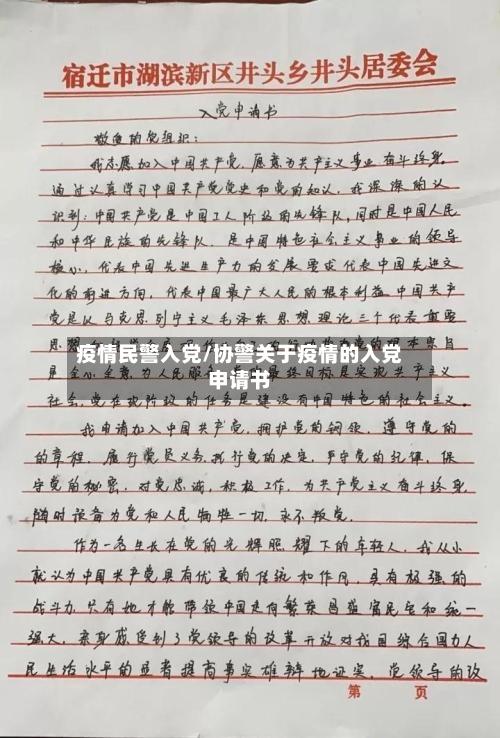 宿迁市湖滨新区井头乡井头居委会
入党申请书
敬爱的党组织：
我志愿加入中国共产党，愿意为共产主义事业奋斗终身。
通过认真学习中国共产党党史和党的知识，我深深的认
识到：中国共产党是中国工人阶级的先锋队，同时是中国人民
和中华民族的先锋队，是中国特色社会主义事业的领导
核心，代表中国先进生产力的发展要求代表中国先进文
化的前进方向，代表中国最广大人民的根本利益中国共产
党是以马克思列宁主义毛泽东思想理论三个代表重要
思想
疫情民警入党/协警关于疫情的入党
申请书
是全心全意为人民服 最终目标是实现共产主义
社会，党在现阶段的任务是建设有中国特色的社会主义。
我申请加入中国共产党，拥护党的钢领，遵守党的
的章程，履行党员义务，执行党的决定，严守党的纪律，保
守党的秘密，对党忠诚，积极工作，为共产党主义奋斗终身
随时设备为党和人民牺牲一切，永不叛党。
作为一名生长在党的光辉照耀下的年轻人，我从小
就认为中国共产党具有优良的传统和作风，具有极强的
战斗力只有她才能带领中国走向繁荣昌盛富民主和统一
强大，亲身感受到了党领导的改革开放对我国综合国力人
民生活水平的显著提高事实雄辩地证实，党领导的改
第 页